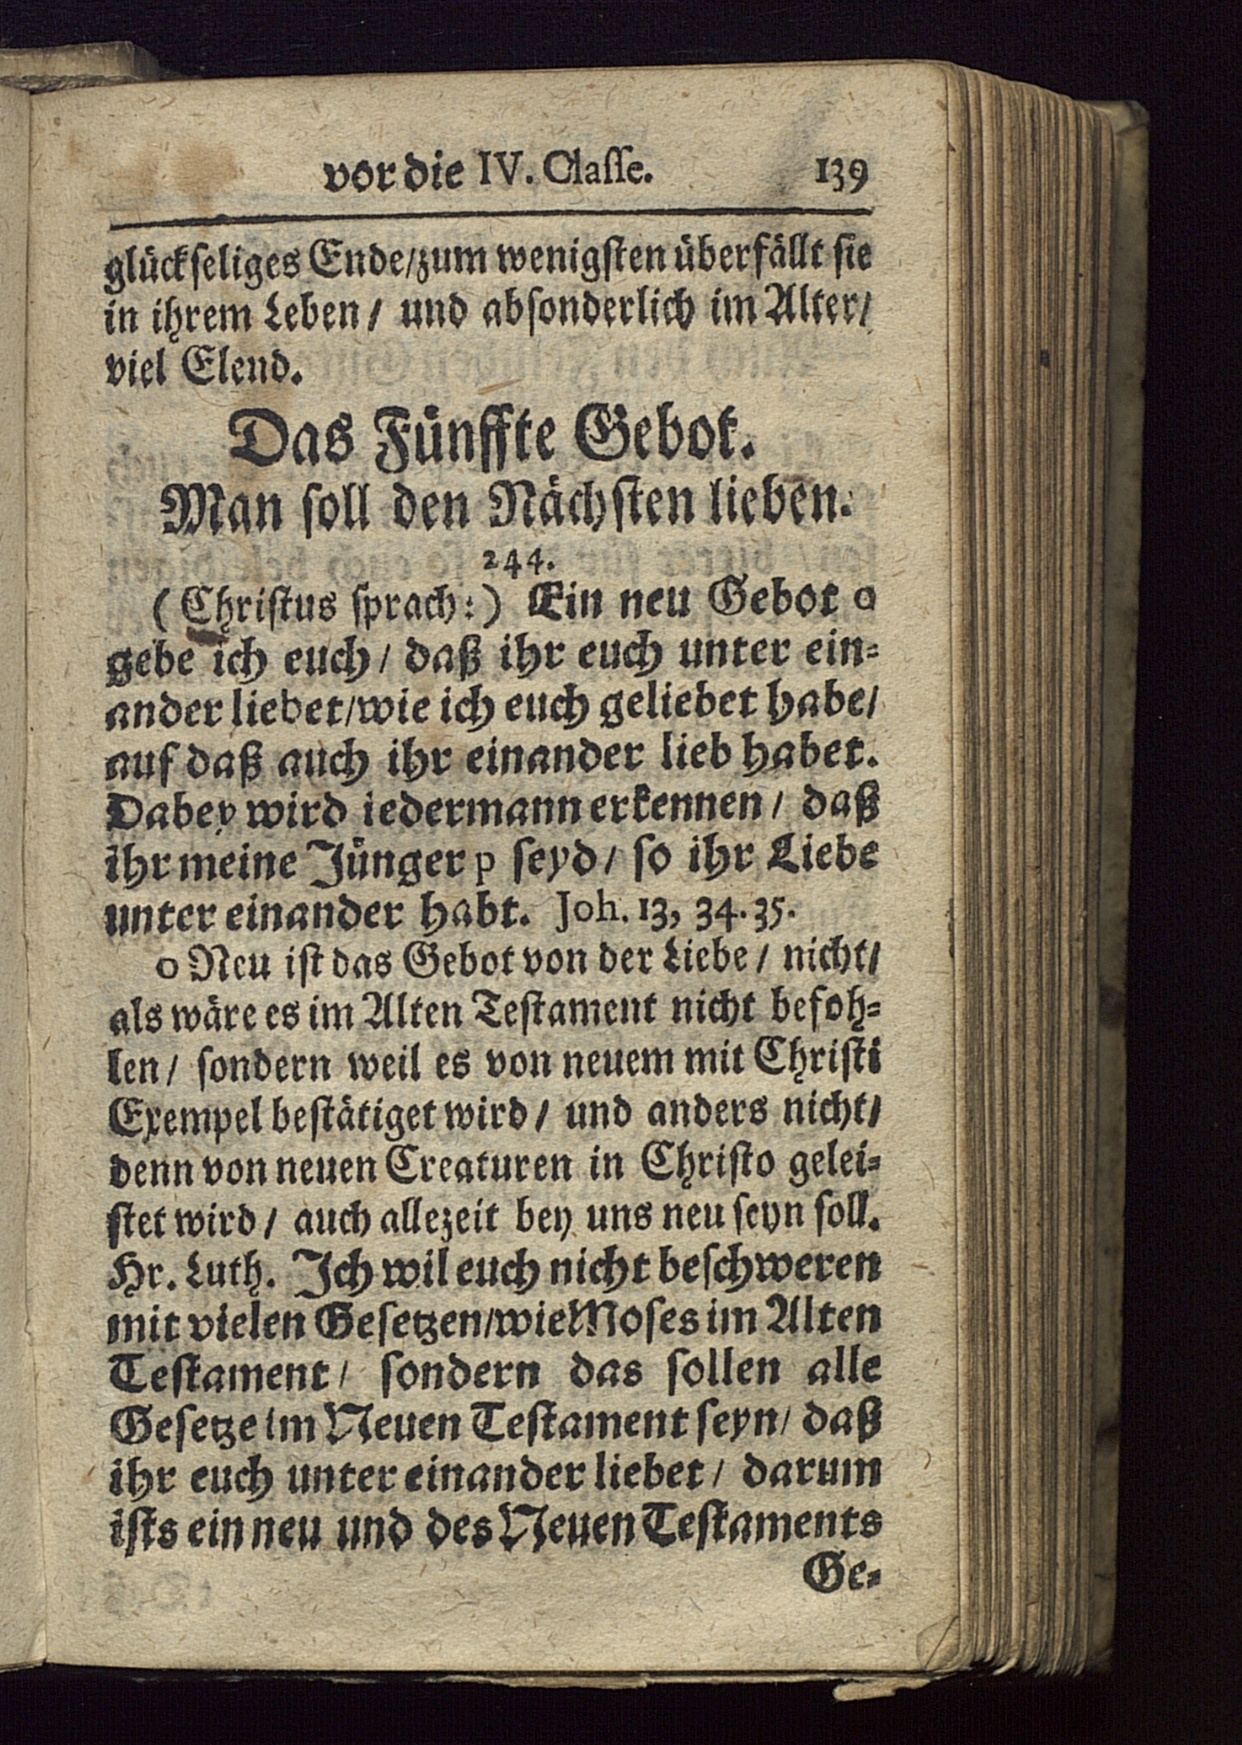 vor die IV. Classe. 139
glückseliges Ende/zum wenigsten überfällt sie
in ihrem Leben/ und absonderlich im Alter/
viel Elend.
Das Fünffte Gebot.
Man soll den Nächsten lieben.
244.
(Christus sprach:) Ein neu Gebot o
gebe ich euch/ daß ihr euch unter ein-
ander liebet/wie ich euch geliebet habe/
auf daß auch ihr einander lieb habet.
Dabey wird iedermann erkennen/ daß
ihr meine Jünger p seyd/ so ihr Liebe
unter einander habt. Joh. 13, 34. 35.
o Neu ist das Gebot von der Liebe/ nicht/
als wäre es im Alten Testament nicht befoh-
len/ sondern weil es von neuem mit Christi
Exempel bestätiget wird/ und anders nicht/
denn von neuen Creaturen in Christo gelei-
stet wird/ auch allezeit bey uns neu seyn soll.
Hr. Luth. Ich wil euch nicht beschweren
mit vielen Gesetzen/wie Moses im Alten
Testament/ sondern das sollen alle
Gesetze im Neuen Testament seyn/ daß
ihr euch unter einander liebet/ darum
ists ein neu und des Neuen Testaments
Ge-